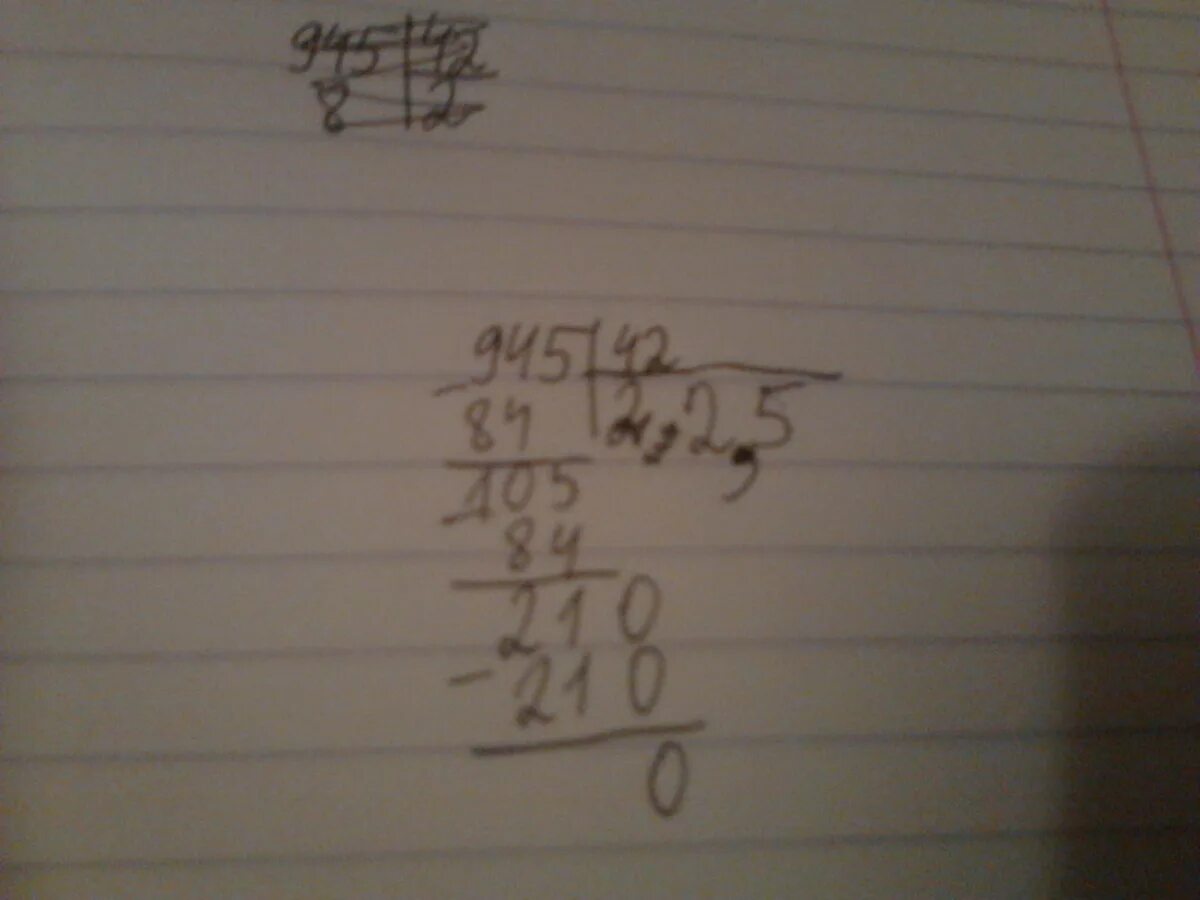 945 42
8 2
945 42
- 84 2,2,5
105
- 84
210
- 210
0